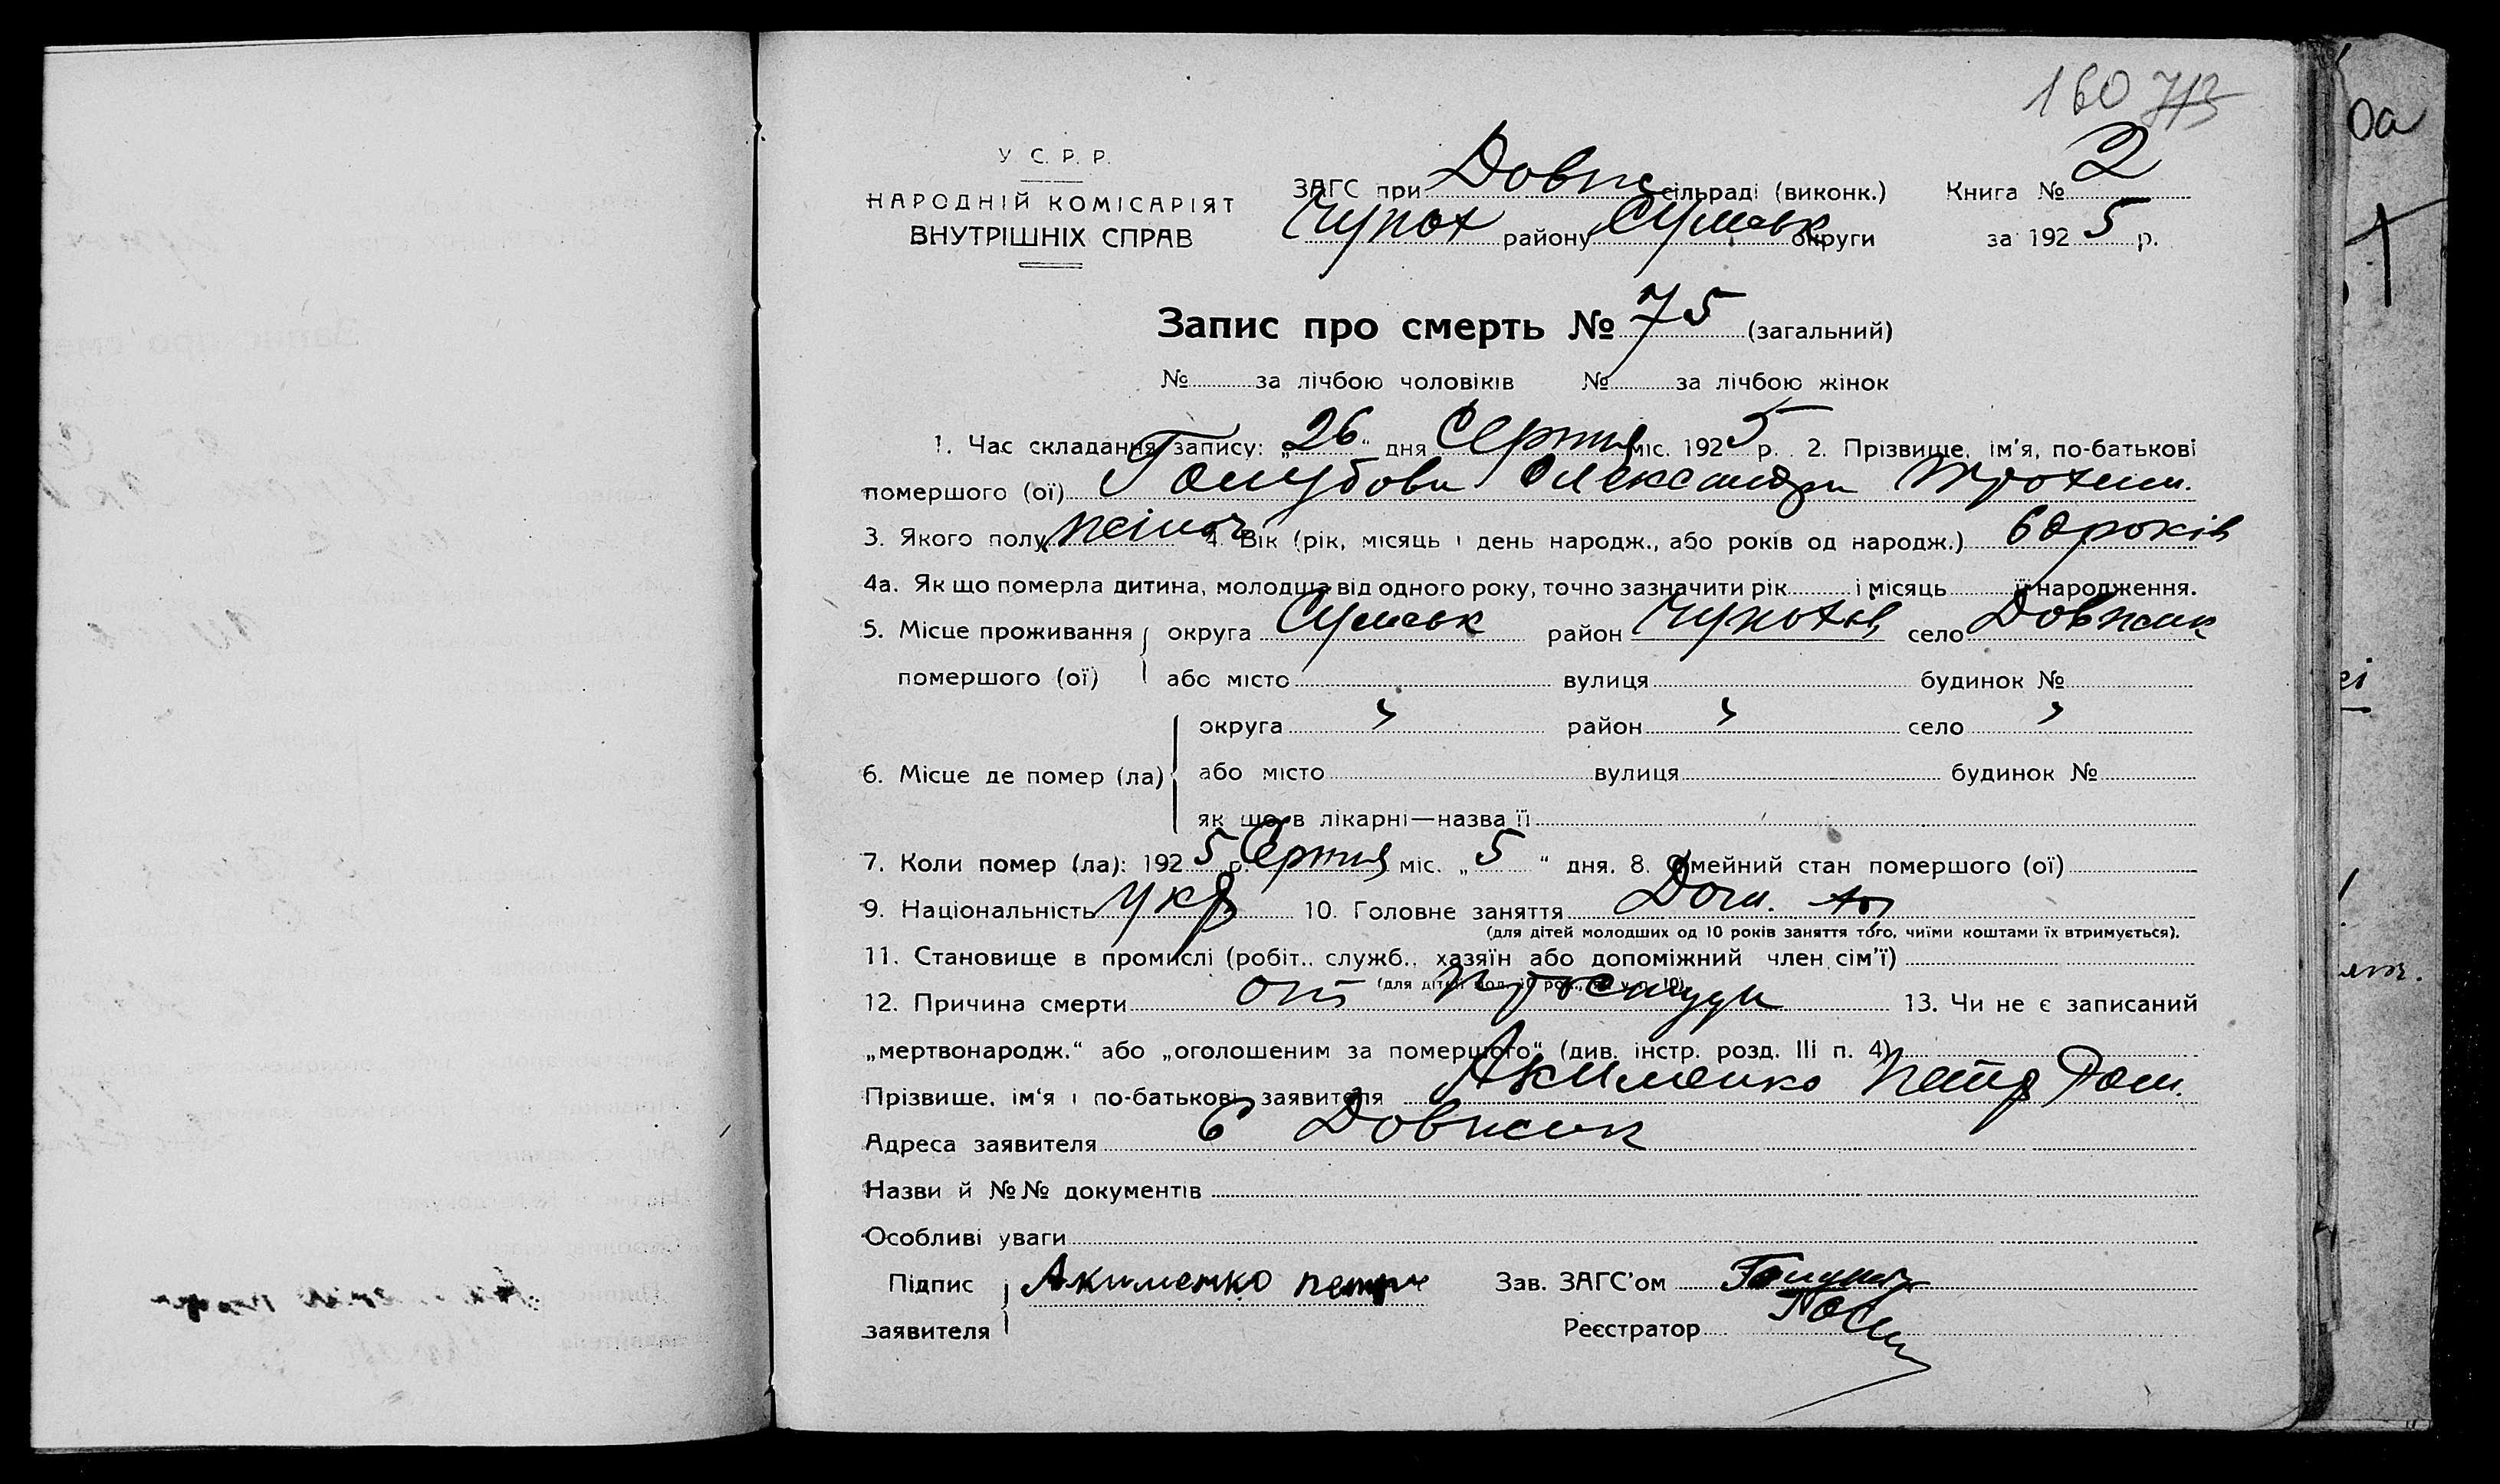 160 713
У С. Р. Р.
НАРОДНІЙ КОМІСАРІЯТ
ВНУТРІШНІХ СПРАВ
ЗАГС при Довж сільраді (виконк.) Книга № 2
району Сумськ округи за 1925 р.
Запис про смерть № 75 (загальний)
№ за лічбою чоловіків № за лічбою жінок
1. Час складання запису: „26“ дня Серпня міс. 1925 р. 2. Прізвище, ім'я, по-батькові
помершого (ої) Голубова Олександра Трохим.
3. Якого полу жіноч 4. Вік (рік, місяць і день народж., або років од народж.) 60 років
4а. Як що померла дитина, молодша від одного року, точно зазначити рік і місяць її народження.
5. Місце проживання округа Сумськ район село Довжик
помершого (ої) або місто вулиця будинок №
округа " район " село "
6. Місце де помер (ла) або місто вулиця будинок №
як що в лікарні—назва її
7. Коли помер (ла): 1925 р. Серпня міс. „5“ дня. 8. Сімейний стан помершого (ої)
9. Національність Укр 10. Головне заняття Дом.
(для дітей молодших од 10 років заняття того, чиїми коштами їх втримується).
11. Становище в промислі (робіт., служб., хазяїн або допоміжний член сім'ї)
(для дітей мол. 10 рок., як у п. 10).
12. Причина смерти от простуди 13. Чи не є записаний
„мертвонародж.“ або „оголошеним за помершого“ (див. інстр. розд. III п. 4)
Прізвище, ім'я і по-батькові заявителя Акименко Петр
Адреса заявителя С Довжик
Назви й №№ документів
Особливі уваги
Підпис Акименко петр Зав. ЗАГС'ом
заявителя Реєстратор